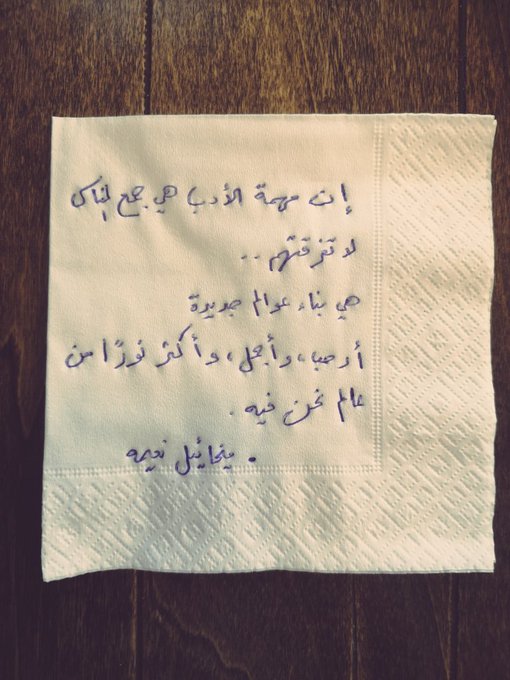 إن مهمة الأدب هي جمع الناس
لا تفرقتهم ..
هي بناء عوالم جديدة
أرحب، وأجمل، وأكثر نورًا من
عالم نحن فيه .
. ميخائيل نعيمه